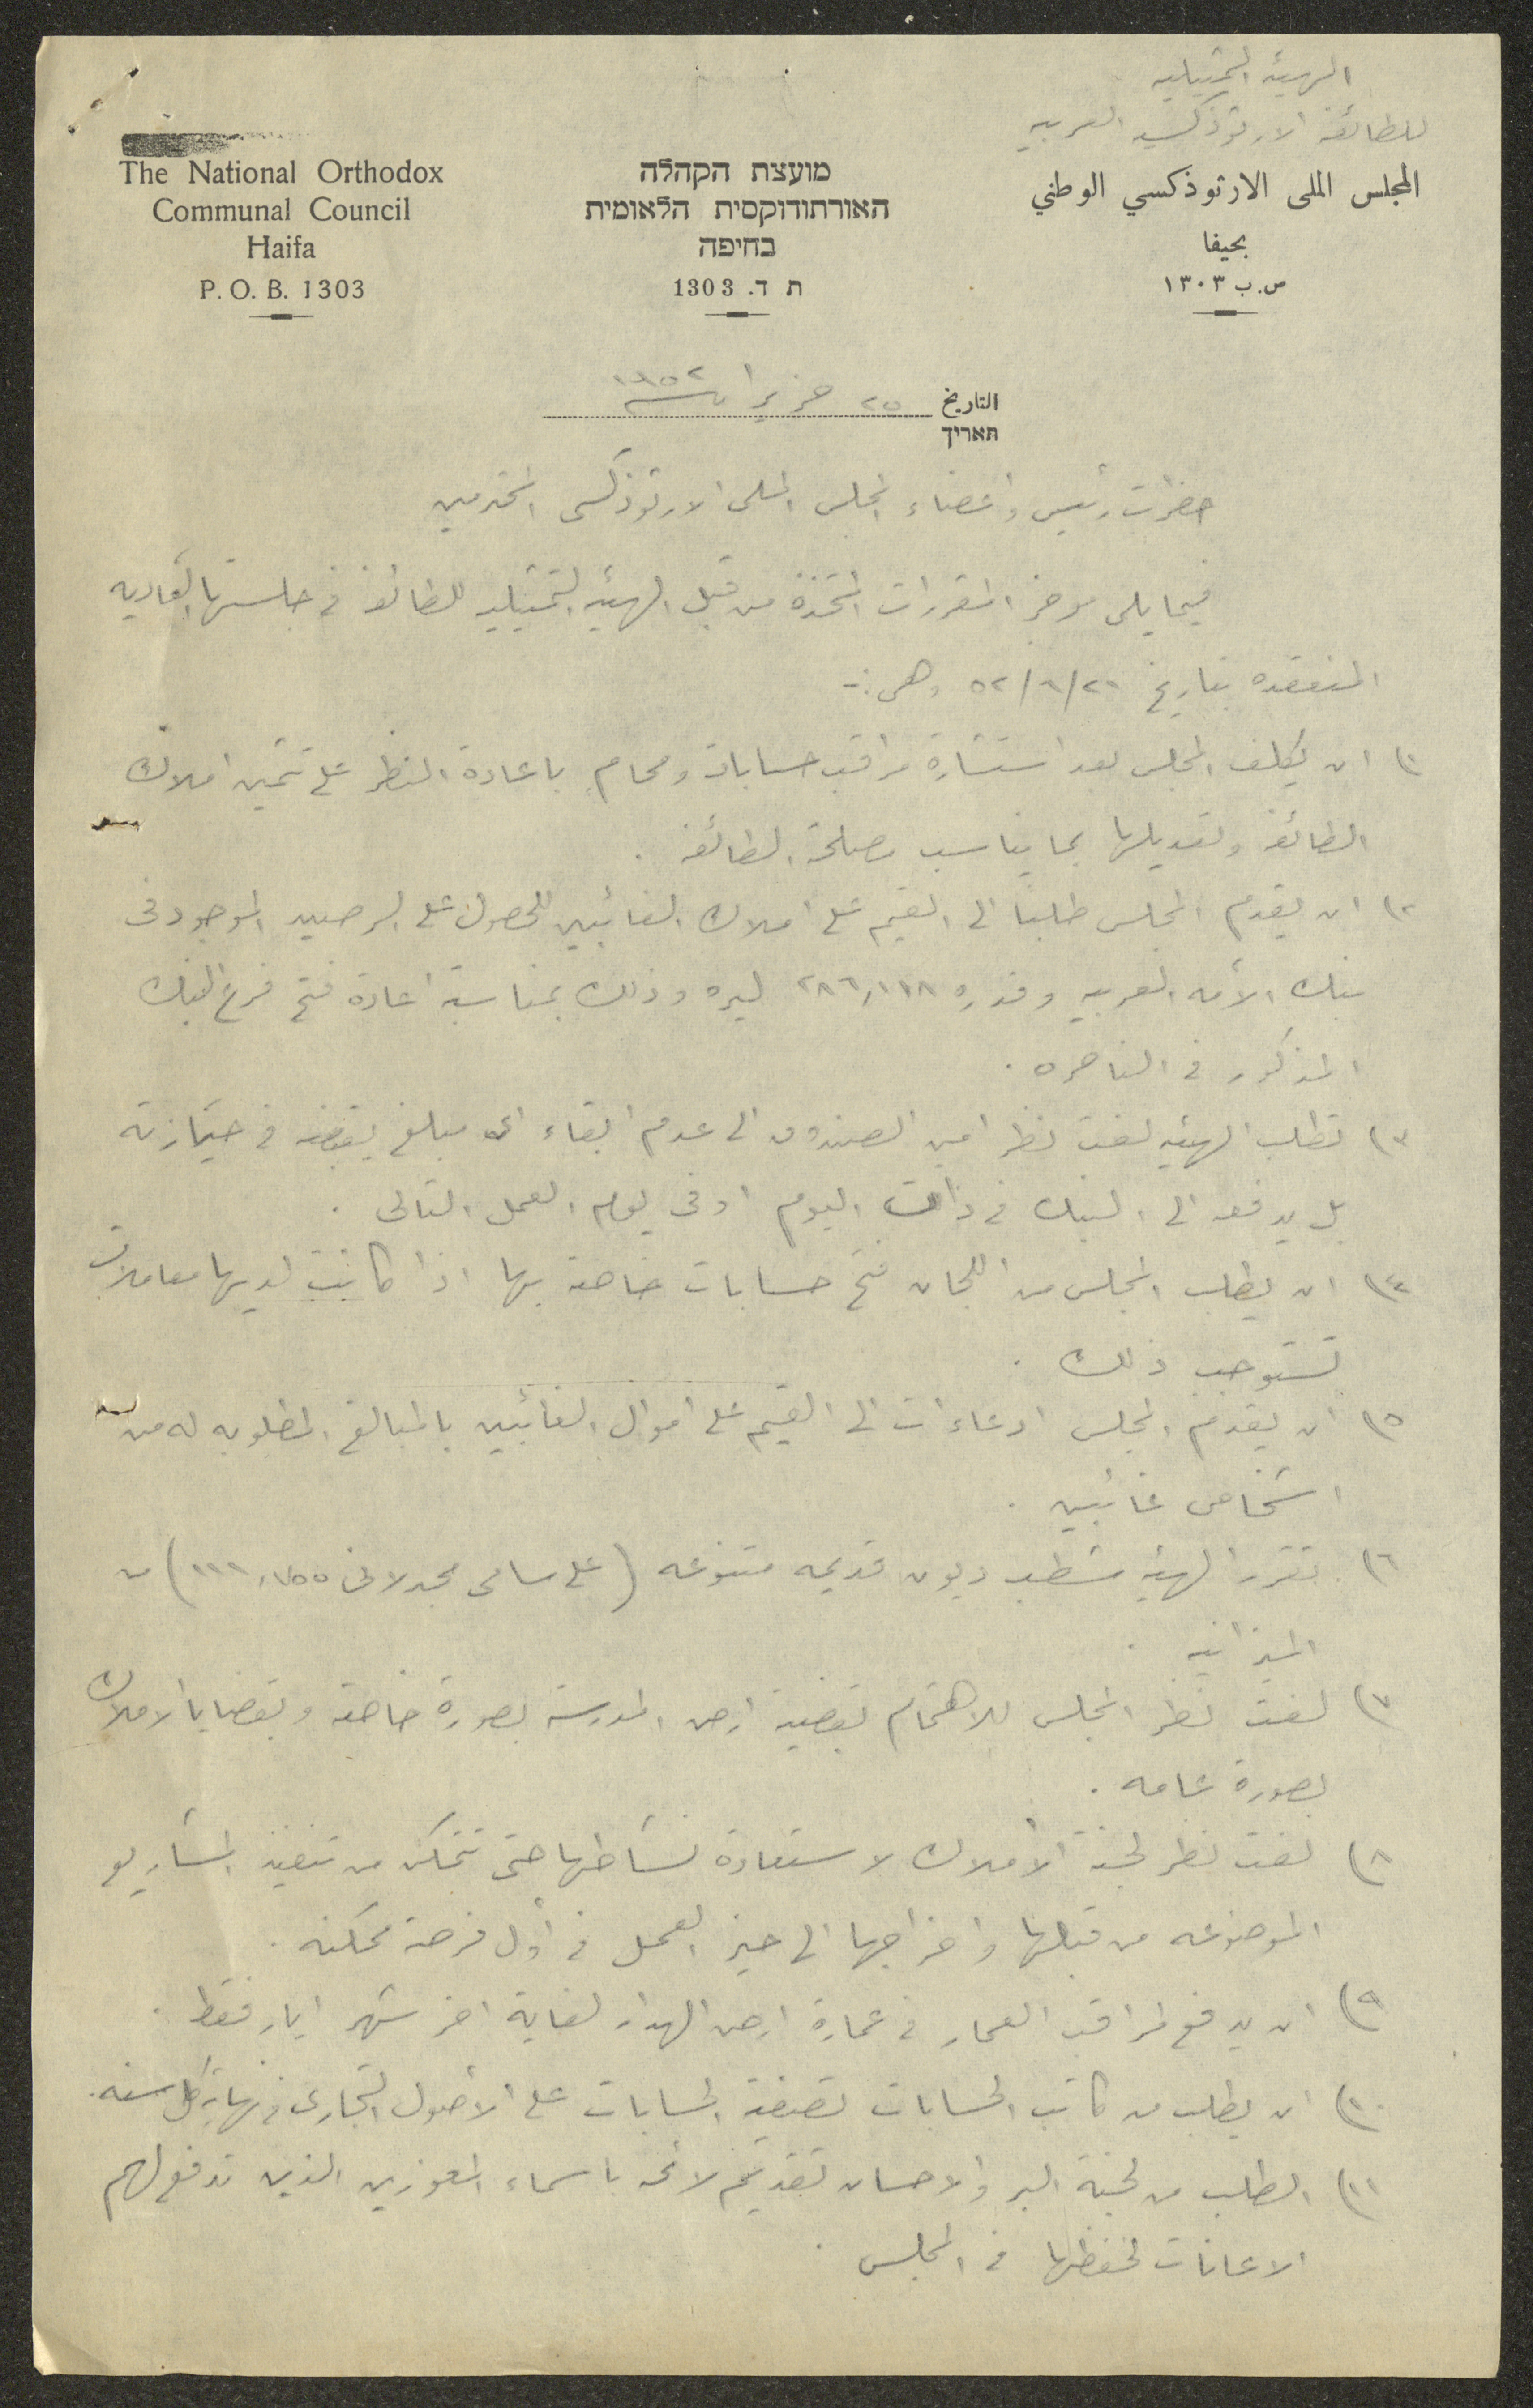 الهيئة التمثيليه
للطائفة الارثوذكسيه العربيه
The National Orthodox
Communal Council
Haifa
P. O. B. 1303
מועצת הקהלה
האורתודוקסית הלאומית
בחיפה
ת ד. 1303
المجلس الملى الارثوذكسي الوطني
بحيفا
ص. ب ١٣٠٣
التاريخ ٢٥ حزيران سنة ١٩٥٢
תאריך
حضرات رئيس واعضاء المجلس الملى الارثوذكسى المحترمين
فيما يلى موجز المقررات المتخذة من قبل الهيئه التمثيليه للطائفه في جلستها العاديه
المنعقده بتاريخ ٥٢/٦/٢٠ وهى :-
١) ان يكلف المجلس بعد استشارة مراقب حسابات ومحام باعادة النظر على تثمين املاك
الطائفه وتعديلها بما يناسب مصلحة الطائفه .
٢) ان يقدم المجلس طلبا الى القيم على املاك الغائبين للحصول على الرصيد الموجود فى
بنك الأمه العربيه وقدره ٢٨٦,١١٨ ليره وذلك بمناسبة اعادة فتح فرع البنك
المذكور في الناصره .
٣) تطلب الهيئه لفت نظر امين الصندوق الى عدم ابقاء اى مبلغ يقبضه في حيازته
بل يدفعه الى البنك في ذات اليوم او فى يوم العمل التالى .
٤) ان يطلب المجلس من اللجان فتح حسابات خاصة بها اذا كانت لديها معاملات
تستوجب ذلك .
٥) ان يقدم المجلس ادعاءات الى القيم على اموال الغائبين بالمبالغ المطلوبه له من
اشخاص غائبين .
٦) تقرر الهيئه شطب ديون قديمه متنوعه (على سامى مجدلانى ١١١,٧٥٥) من
الميزانيه .
٧) لفت نظر المجلس للاهتمام بقضية ارض المدرسة بصورة خاصة وبقضايا الاملاك
بصورة عامه .
٨) لفت نظر لجنة الأملاك لاستعادة نشاطها حتى تتمكن من تنفيذ المشاريع
الموضوعه من قبلها واخراجها الى حيز العمل في أول فرصة ممكنه .
٩) ان يدفع لمراقب العمار في عمارة ارض الهدار لغاية اخر شهر ايار فقط .
١٠) ان يطلب من كاتب الحسابات تصفية الحسابات على الأصول التجارى في نهاية كل سنه .
١١) الطلب من لجنة البر والاحسان تقديم لائحه باسماء المعوزين الذين تدفع لهم
الاعانات لحفظها في المجلس .